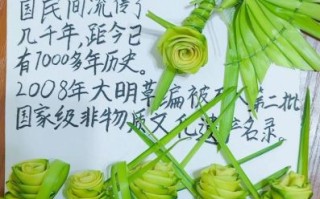 国民间流传了
几千年,距今已
有7000多年历史。
2008年大明草编被列入第二批
国家级非物质文化遗产名录。